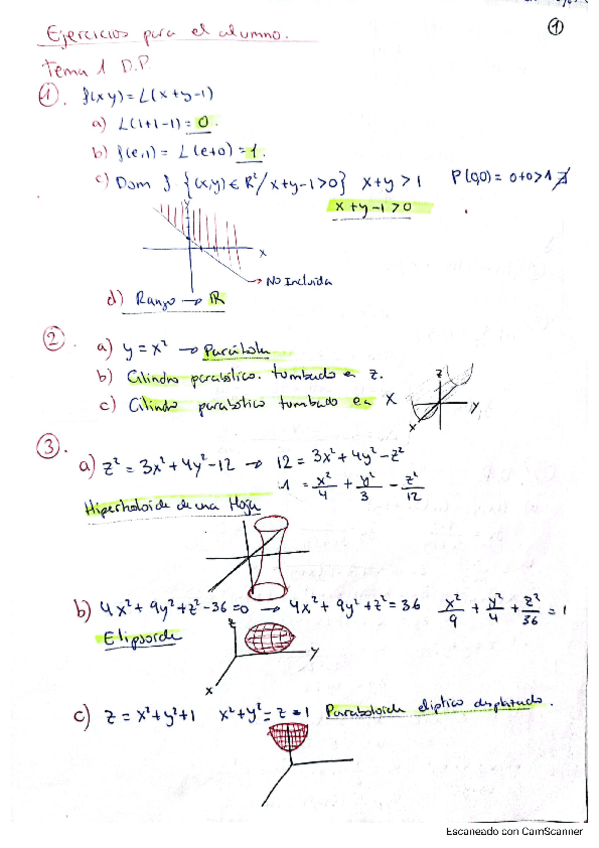 ①
Ejercicios para el alumno.
Tema 1 D.P.
①. f(x,y) = L(x+y-1)
a) L(1+1-1) = 0.
b) f(e,1) = L(e+0) = 1.
c) Dom f {(x,y) ∈ R²/x+y-1>0} x+y>1 P(0,0) = 0+0>1 ∄
x+y-1>0
y
x
→ No Incluida
d) Rango → R
②. a) y = x² → Parábola
b) Cilindro parabólico. tumbado en z.
c) Cilindo parabólico tumbado en X
z
y
x
③.
a) z² = 3x²+4y²-12 → 12 = 3x²+4y²-z²
1 = x²/4 + y²/3 - z²/12
Hiperboloide de una Hoja
b) 4x²+9y²+z²-36=0 → 4x²+9y²+z²=36 x²/9 + y²/4 + z²/36 = 1
Elipsoide
z
y
x
c) z = x²+y²+1 x²+y² = z-1 Paraboloide eliptico desplazado.
Escaneado con CamScanner